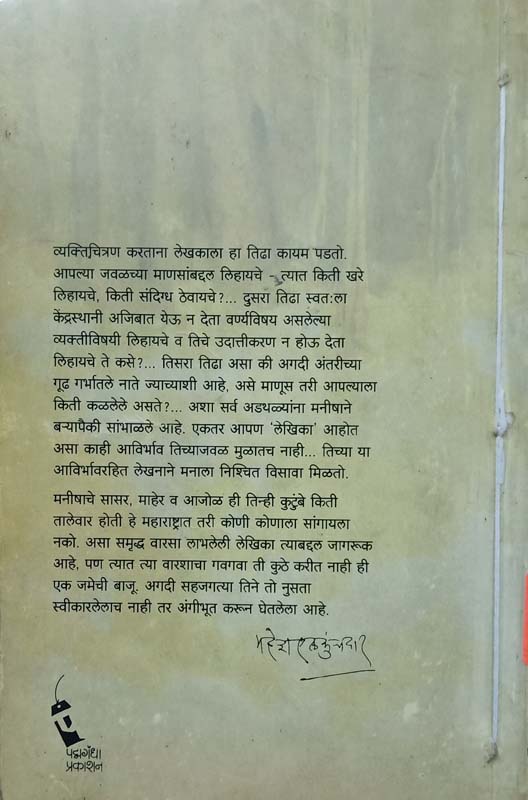 व्यक्तिचित्रण करताना लेखकाला हा तिढा कायम पडतो.
आपल्या जवळच्या माणसांबद्दल लिहायचे - त्यात किती खरे
लिहायचे, किती संदिग्ध ठेवायचे?... दुसरा तिढा स्वत:ला
केंद्रस्थानी अजिबात येऊ न देता वर्ण्यविषय असलेल्या
व्यक्तीविषयी लिहायचे व तिचे उदात्तीकरण न होऊ देता
लिहायचे ते कसे?... तिसरा तिढा असा की अगदी अंतरीच्या
गूढ गर्भातले नाते ज्याच्याशी आहे, असे माणूस तरी आपल्याला
किती कळलेले असते?... अशा सर्व अडथळ्यांना मनीषाने
बऱ्यापैकी सांभाळले आहे. एकतर आपण ‘लेखिका’ आहोत
असा काही आविर्भाव तिच्याजवळ मुळातच नाही... तिच्या या
आविर्भावरहित लेखनाने मनाला निश्चित विसावा मिळतो.
मनीषाचे सासर, माहेर व आजोळ ही तिन्ही कुटुंबे किती
तालेवार होती हे महाराष्ट्रात तरी कोणी कोणाला सांगायला
नको. असा समृद्ध वारसा लाभलेली लेखिका त्याबद्दल जागरूक
आहे, पण त्यात त्या वारशाचा गवगवा ती कुठे करीत नाही ही
एक जमेची बाजू. अगदी सहजगत्या तिने तो नुसता
स्वीकारलेलाच नाही तर अंगीभूत करून घेतलेला आहे.
महेश एलकुंचवार
पद्मगंधा
प्रकाशन